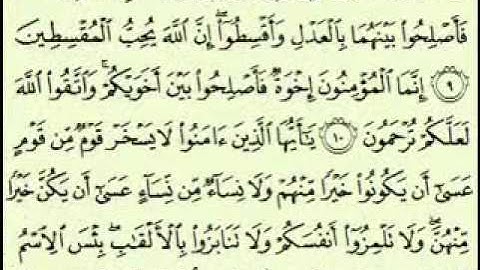 فَأَصْلِحُوا۟ بَيْنَهُمَا بِٱلْعَدْلِ وَأَقْسِطُوٓا۟ ۖ إِنَّ ٱللَّهَ يُحِبُّ ٱلْمُقْسِطِينَ
۝٩ إِنَّمَا ٱلْمُؤْمِنُونَ إِخْوَةٌ فَأَصْلِحُوا۟ بَيْنَ أَخَوَيْكُمْ ۚ وَٱتَّقُوا۟ ٱللَّهَ
لَعَلَّكُمْ تُرْحَمُونَ ۝١٠ يَـٰٓأَيُّهَا ٱلَّذِينَ ءَامَنُوا۟ لَا يَسْخَرْ قَوْمٌ مِّن قَوْمٍ
عَسَىٰٓ أَن يَكُونُوا۟ خَيْرًا مِّنْهُمْ وَلَا نِسَآءٌ مِّن نِّسَآءٍ عَسَىٰٓ أَن يَكُنَّ خَيْرًا
مِّنْهُنَّ ۖ وَلَا تَلْمِزُوٓا۟ أَنفُسَكُمْ وَلَا تَنَابَزُوا۟ بِٱلْأَلْقَـٰبِ ۖ بِئْسَ ٱلِٱسْمُ